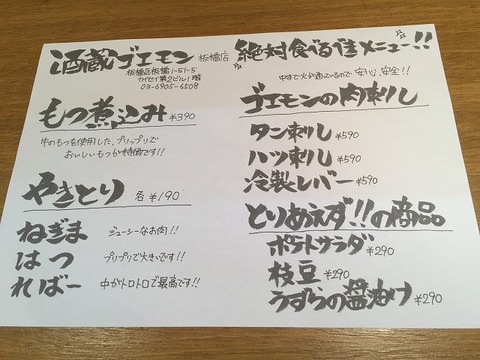 酒蔵ゴエモン 板橋店
板橋区板橋1-51-5
カイセイ第2ビル1階
03-6905-6508
もつ煮込み ¥390
牛のもつを使用した、プリップリで
おいしいもつが特徴です!!
やきとり 各¥190
ねぎま ジューシーなお肉!!
はつ プリプリで大きいです!!
ればー 中がトロトロで最高です!!
絶対食べるべきメニュー!!
中まで火が通っているので安心、安全!!
ゴエモンの肉刺し
タン刺し ¥590
ハツ刺し ¥590
冷製レバー ¥590
とりあえず!!の商品
ポテトサラダ ¥290
枝豆 ¥290
うずらの醤油け ¥290